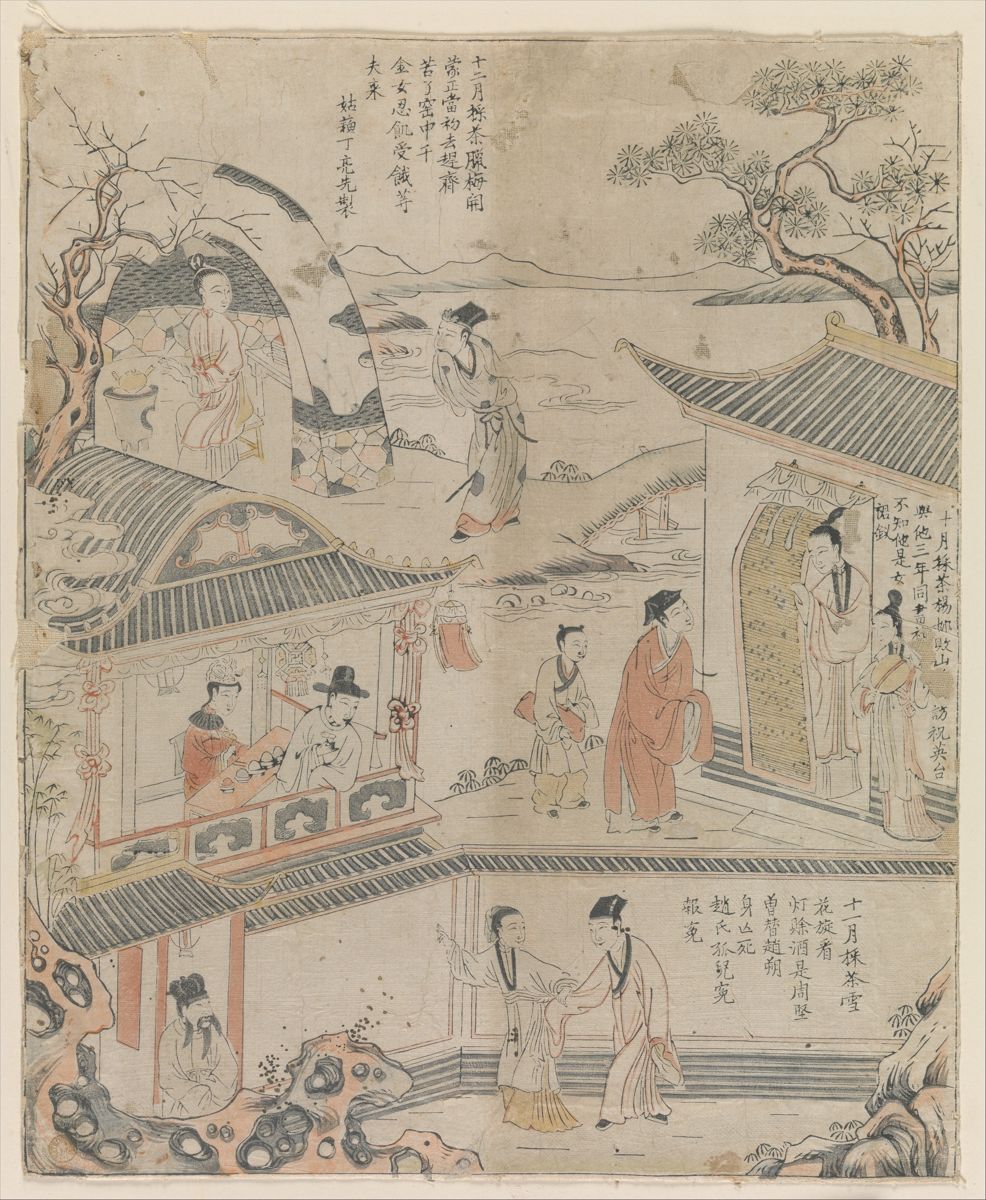 十二月採茶臘梅開
蒙正當初去趕齋
苦了窑中千
金女忍飢受餓等
夫來
姑蘇丁亮先製
十月採茶楊柳敗山
訪祝英台
與他三年同
不知他是女
裙釵
十一月採茶雪
花旋看
灯賒酒是周堅
曾替趙朔
身亾死
趙氏孤兒寃
報寃